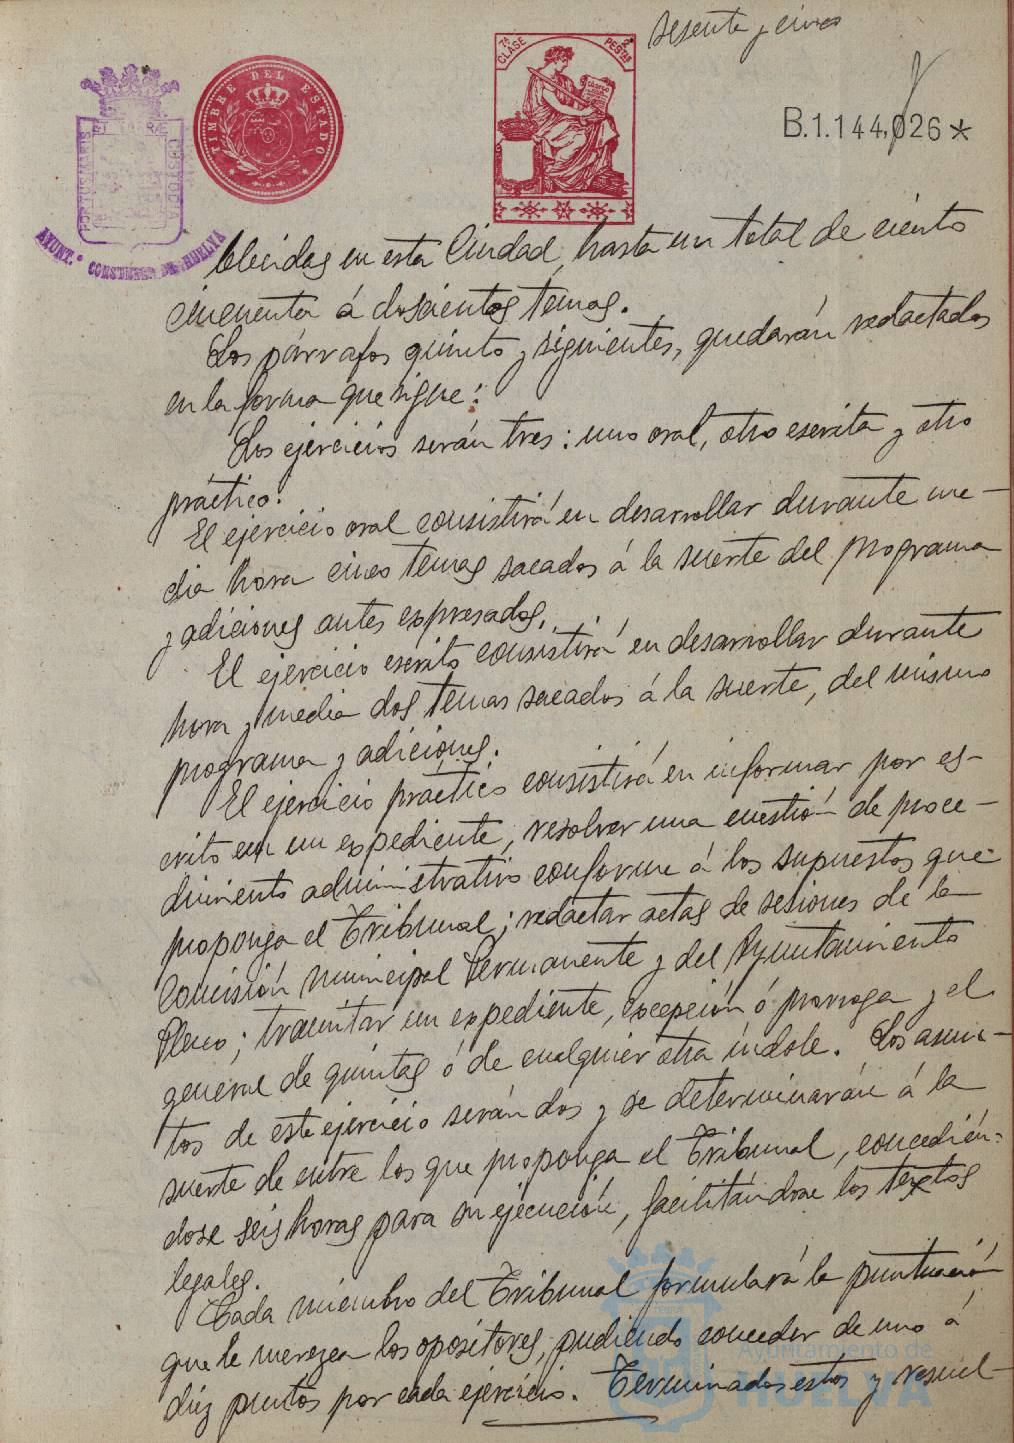 sesenta y cinco
7ª CLASE
2 PESTAS
TIMBRE DEL ESTADO
B.1.144,026*
PORTUS MARIS ET TERRÆ CUSTODIA
AYUNT.º CONSTITUCNAL DE HUELVA
blecidas en esta Ciudad, hasta un total de ciento
cincuenta á doscientos temas.
Los párrafos quinto y siguientes, quedarán redactados
en la forma que sigue:
Los ejercicios serán tres: uno oral, otro escrita y otro
práctico.
El ejercicio oral consistirá en desarrollar durante me-
dia hora cinco temas sacados á la suerte del programa
y adiciones antes expresados.
El ejercicio escrito consistirá en desarrollar durante
hora y media dos temas sacados á la suerte, del mismo
programa y adiciones.
El ejercicio práctico consistirá en informar por es-
crito en un expediente, resolver una cuestión de proce-
dimiento administrativo conforme á los supuestos que
proponga el Tribunal; redactar actas de sesiones de la
Comisión Municipal Permanente y del Ayuntamiento
Pleno; tramitar un expediente, excepción ó prorroga y el
general de quintas ó de cualquier otra índole. Los asun-
tos de este ejercicio serán dos y se determinarán á la
suerte de entre los que proponga el Tribunal, concedién-
dose seis horas para su ejecución, facilitándose los textos
legales.
Cada miembro del Tribunal formulará la puntuación
que le merezca los opositores, pudiendo conceder de uno á
diez puntos por cada ejercicio. Terminados estos y resuel-
Ayuntamiento de
HUELVA